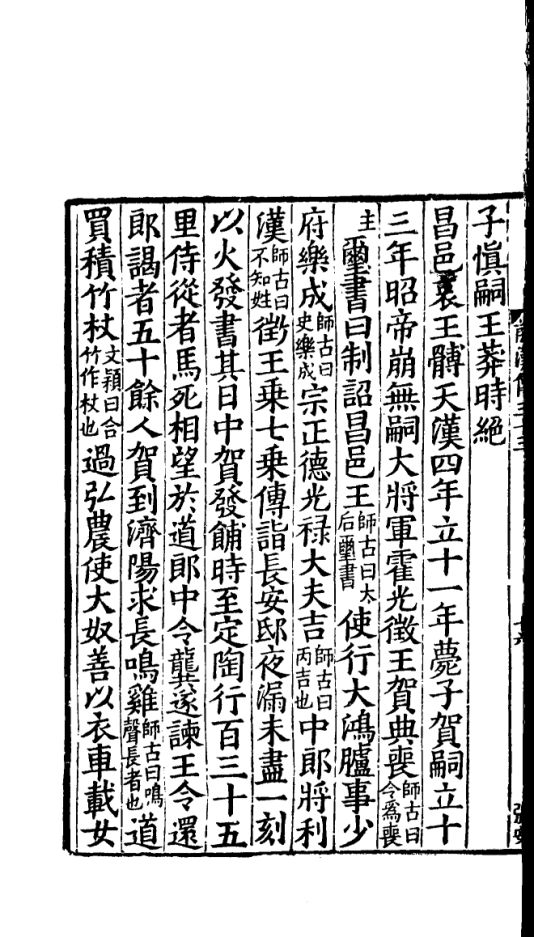 子愼嗣王莽時絶
昌邑哀王髆天漢四年立十一年薨子賀嗣立十
三年昭帝崩無嗣大將軍霍光徵王賀典喪師古曰令爲喪
主璽書曰制詔昌邑王師古曰太后璽書使行大鴻臚事少
府樂成師古曰史樂成宗正德光禄大夫吉師古曰丙吉也中郎將利
漢師古曰不知姓徵王乘七乘傳詣長安邸夜漏未盡一刻
以火發書其日中賀發餔時至定陶行百三十五
里侍從者馬死相望於道郎中令龔遂諫王令還
郎謁者五十餘人賀到濟陽求長鳴雞師古曰鳴聲長者也道
買積竹杖文穎曰合竹作杖也過弘農使大奴善以衣車載女